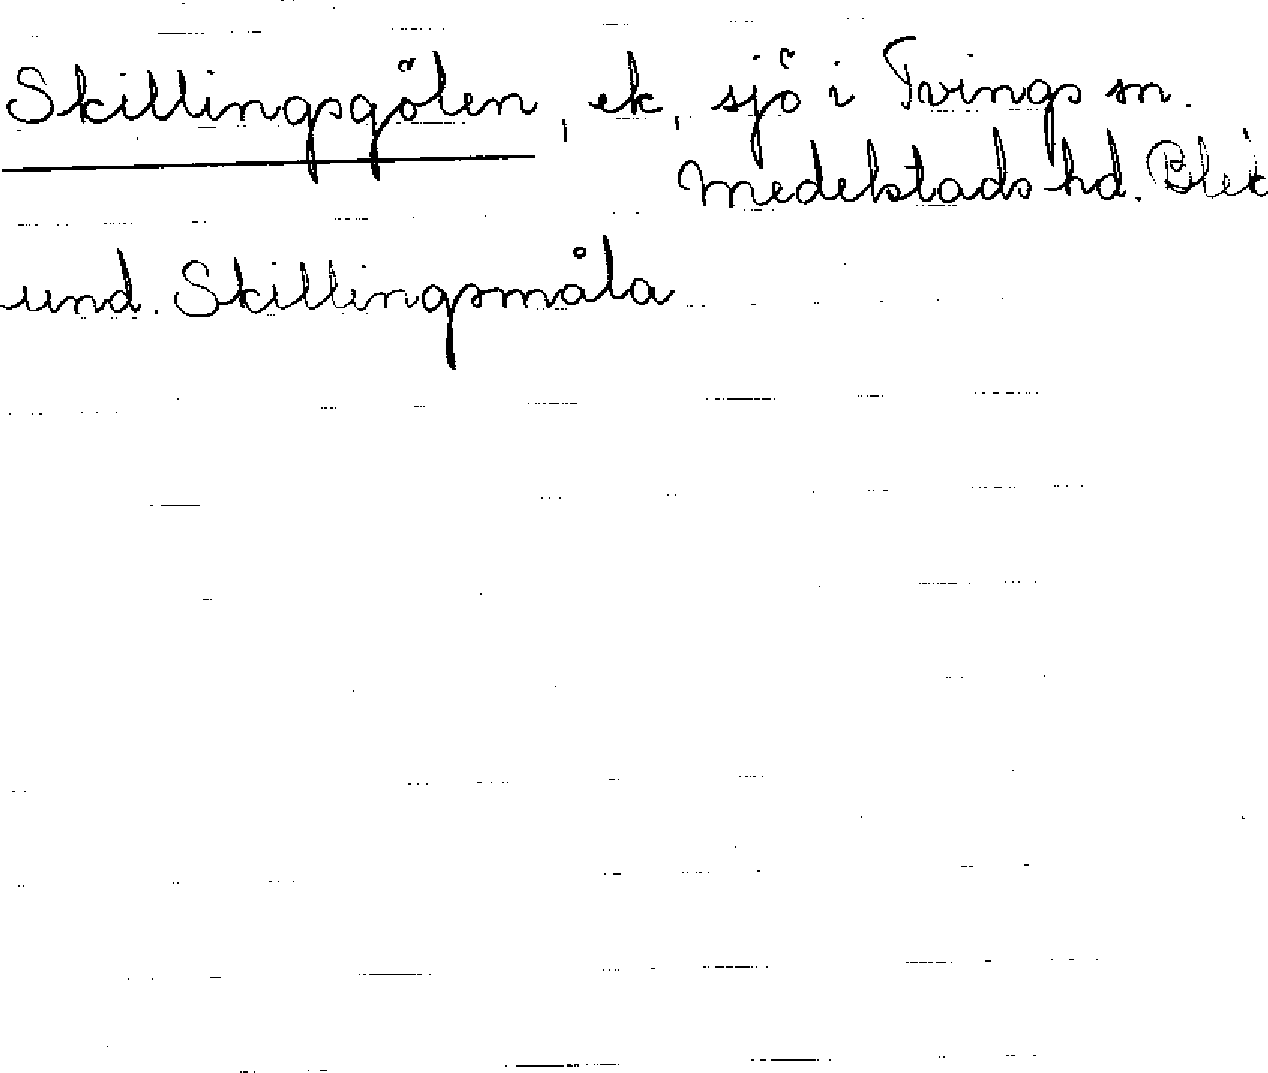 Skillingsgölen, ek, sjö i Tvings sn.
Medelstads hd. Blek
und. Skillingsmåla